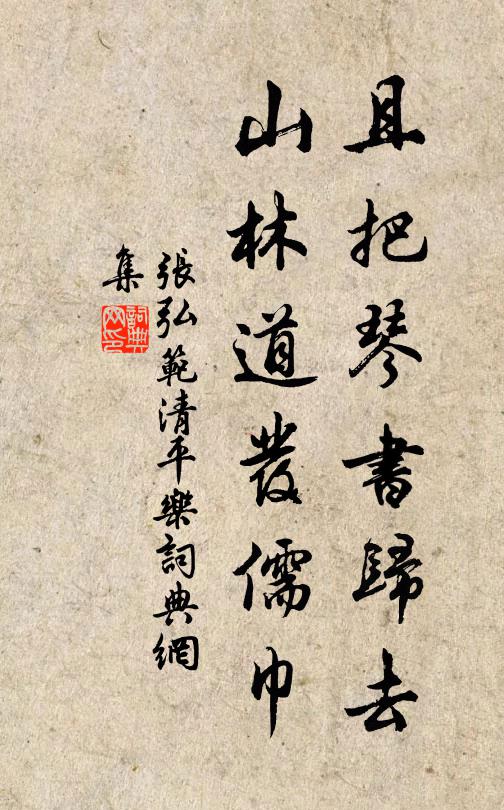 且把琴書歸去
山林道發儒巾
張弘範清平樂詞典網
集
詞典
网印